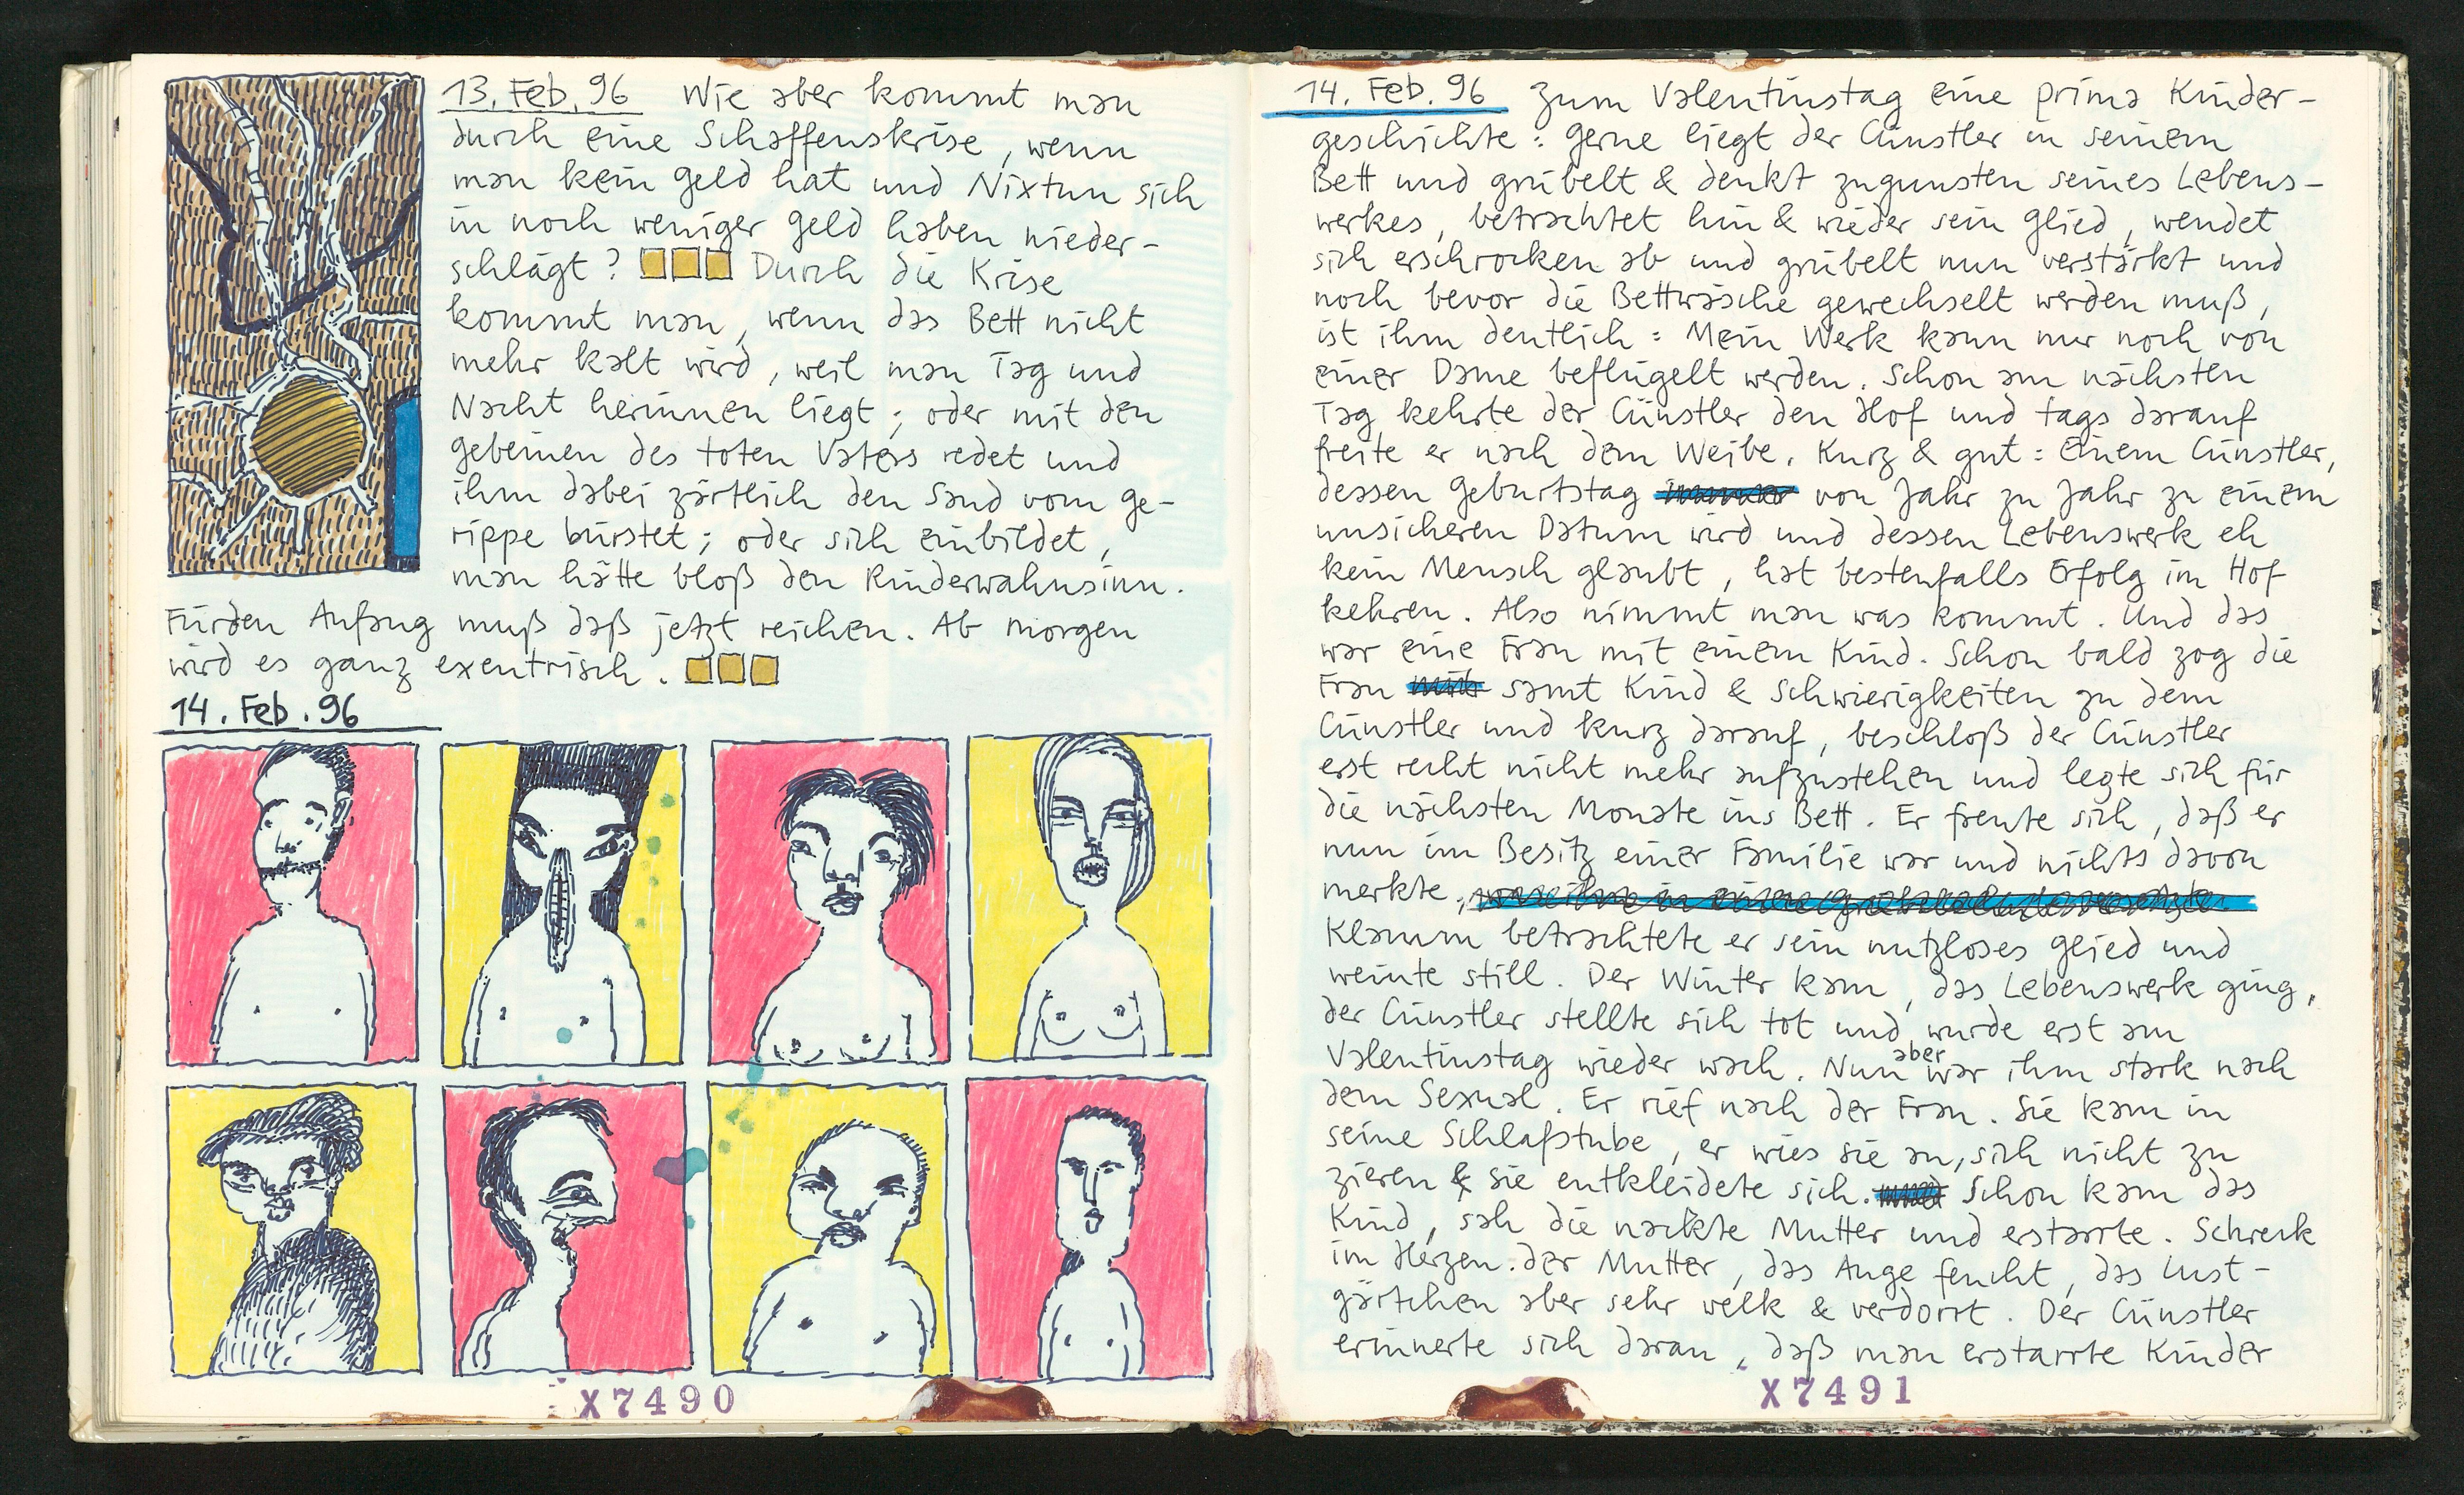 13. Feb. 96 Wie aber kommt man
durch eine Schaffenskrise, wenn
man kein Geld hat und Nixtun sich
in noch weniger Geld haben nieder-
schlägt? Durch die Krise
kommt man, wenn das Bett nicht
mehr kalt wird, weil man Tag und
Nacht herinnen liegt; oder mit den
Gebeinen des toten Vaters redet und
ihm dabei zärtlich den Sand vom Ge-
rippe bürstet; oder sich einbildet,
man hätte bloß den Rinderwahnsinn.
Fürden Anfang muß daß jetzt reichen. Ab morgen
wird es ganz exentrisch.
14. Feb. 96
X7490
14. Feb. 96 Zum Valentinstag eine prima Kinder-
geschichte: Gerne liegt der Cünstler in seinem
Bett und grübelt & denkt zugunsten seines Lebens-
werkes, betrachtet hin & wieder sein Glied, wendet
sich erschrocken ab und grübelt nun verstärkt und
noch bevor die Bettwäsche gewechselt werden muß,
ist ihm deutlich: Mein Werk kann nur noch von
einer Dame beflügelt werden. Schon am nächsten
Tag kehrte der Cünstler den Hof und tags darauf
freite er nach dem Weibe. Kurz & gut: Einem Cünstler,
dessen Geburtstag von Jahr zu Jahr zu einem
unsicheren Datum wird und dessen Lebenswerk eh
kein Mensch glaubt, hat bestenfalls Erfolg im Hof
kehren. Also nimmt man was kommt. Und das
war eine Frau mit einem Kind. Schon bald zog die
Frau samt Kind & Schwierigkeiten zu dem
Cünstler und kurz darauf, beschloß der Cünstler
erst recht nicht mehr aufzustehen und legte sich für
die nächsten Monate ins Bett. Er freute sich, daß er
nun im Besitz einer Familie war und nichts davon
merkte.
Klamm betrachtete er sein nutzloses Glied und
weinte still. Der Winter kam, das Lebenswerk ging,
der Cünstler stellte sich tot und wurde erst am
Valentinstag wieder wach. Nun aber war ihm stark nach
dem Sexual. Er rief nach der Frau. Sie kam in
seine Schlafstube, er wies sie an, sich nicht zu
zieren & sie entkleidete sich. Schon kam das
Kind, sah die nackte Mutter und erstarrte. Schreck
im Herzen der Mutter, das Auge feucht, das Lust-
gärtchen aber sehr welk & verdorrt. Der Cünstler
erinnerte sich daran, daß man erstarrte Kinder
X7491